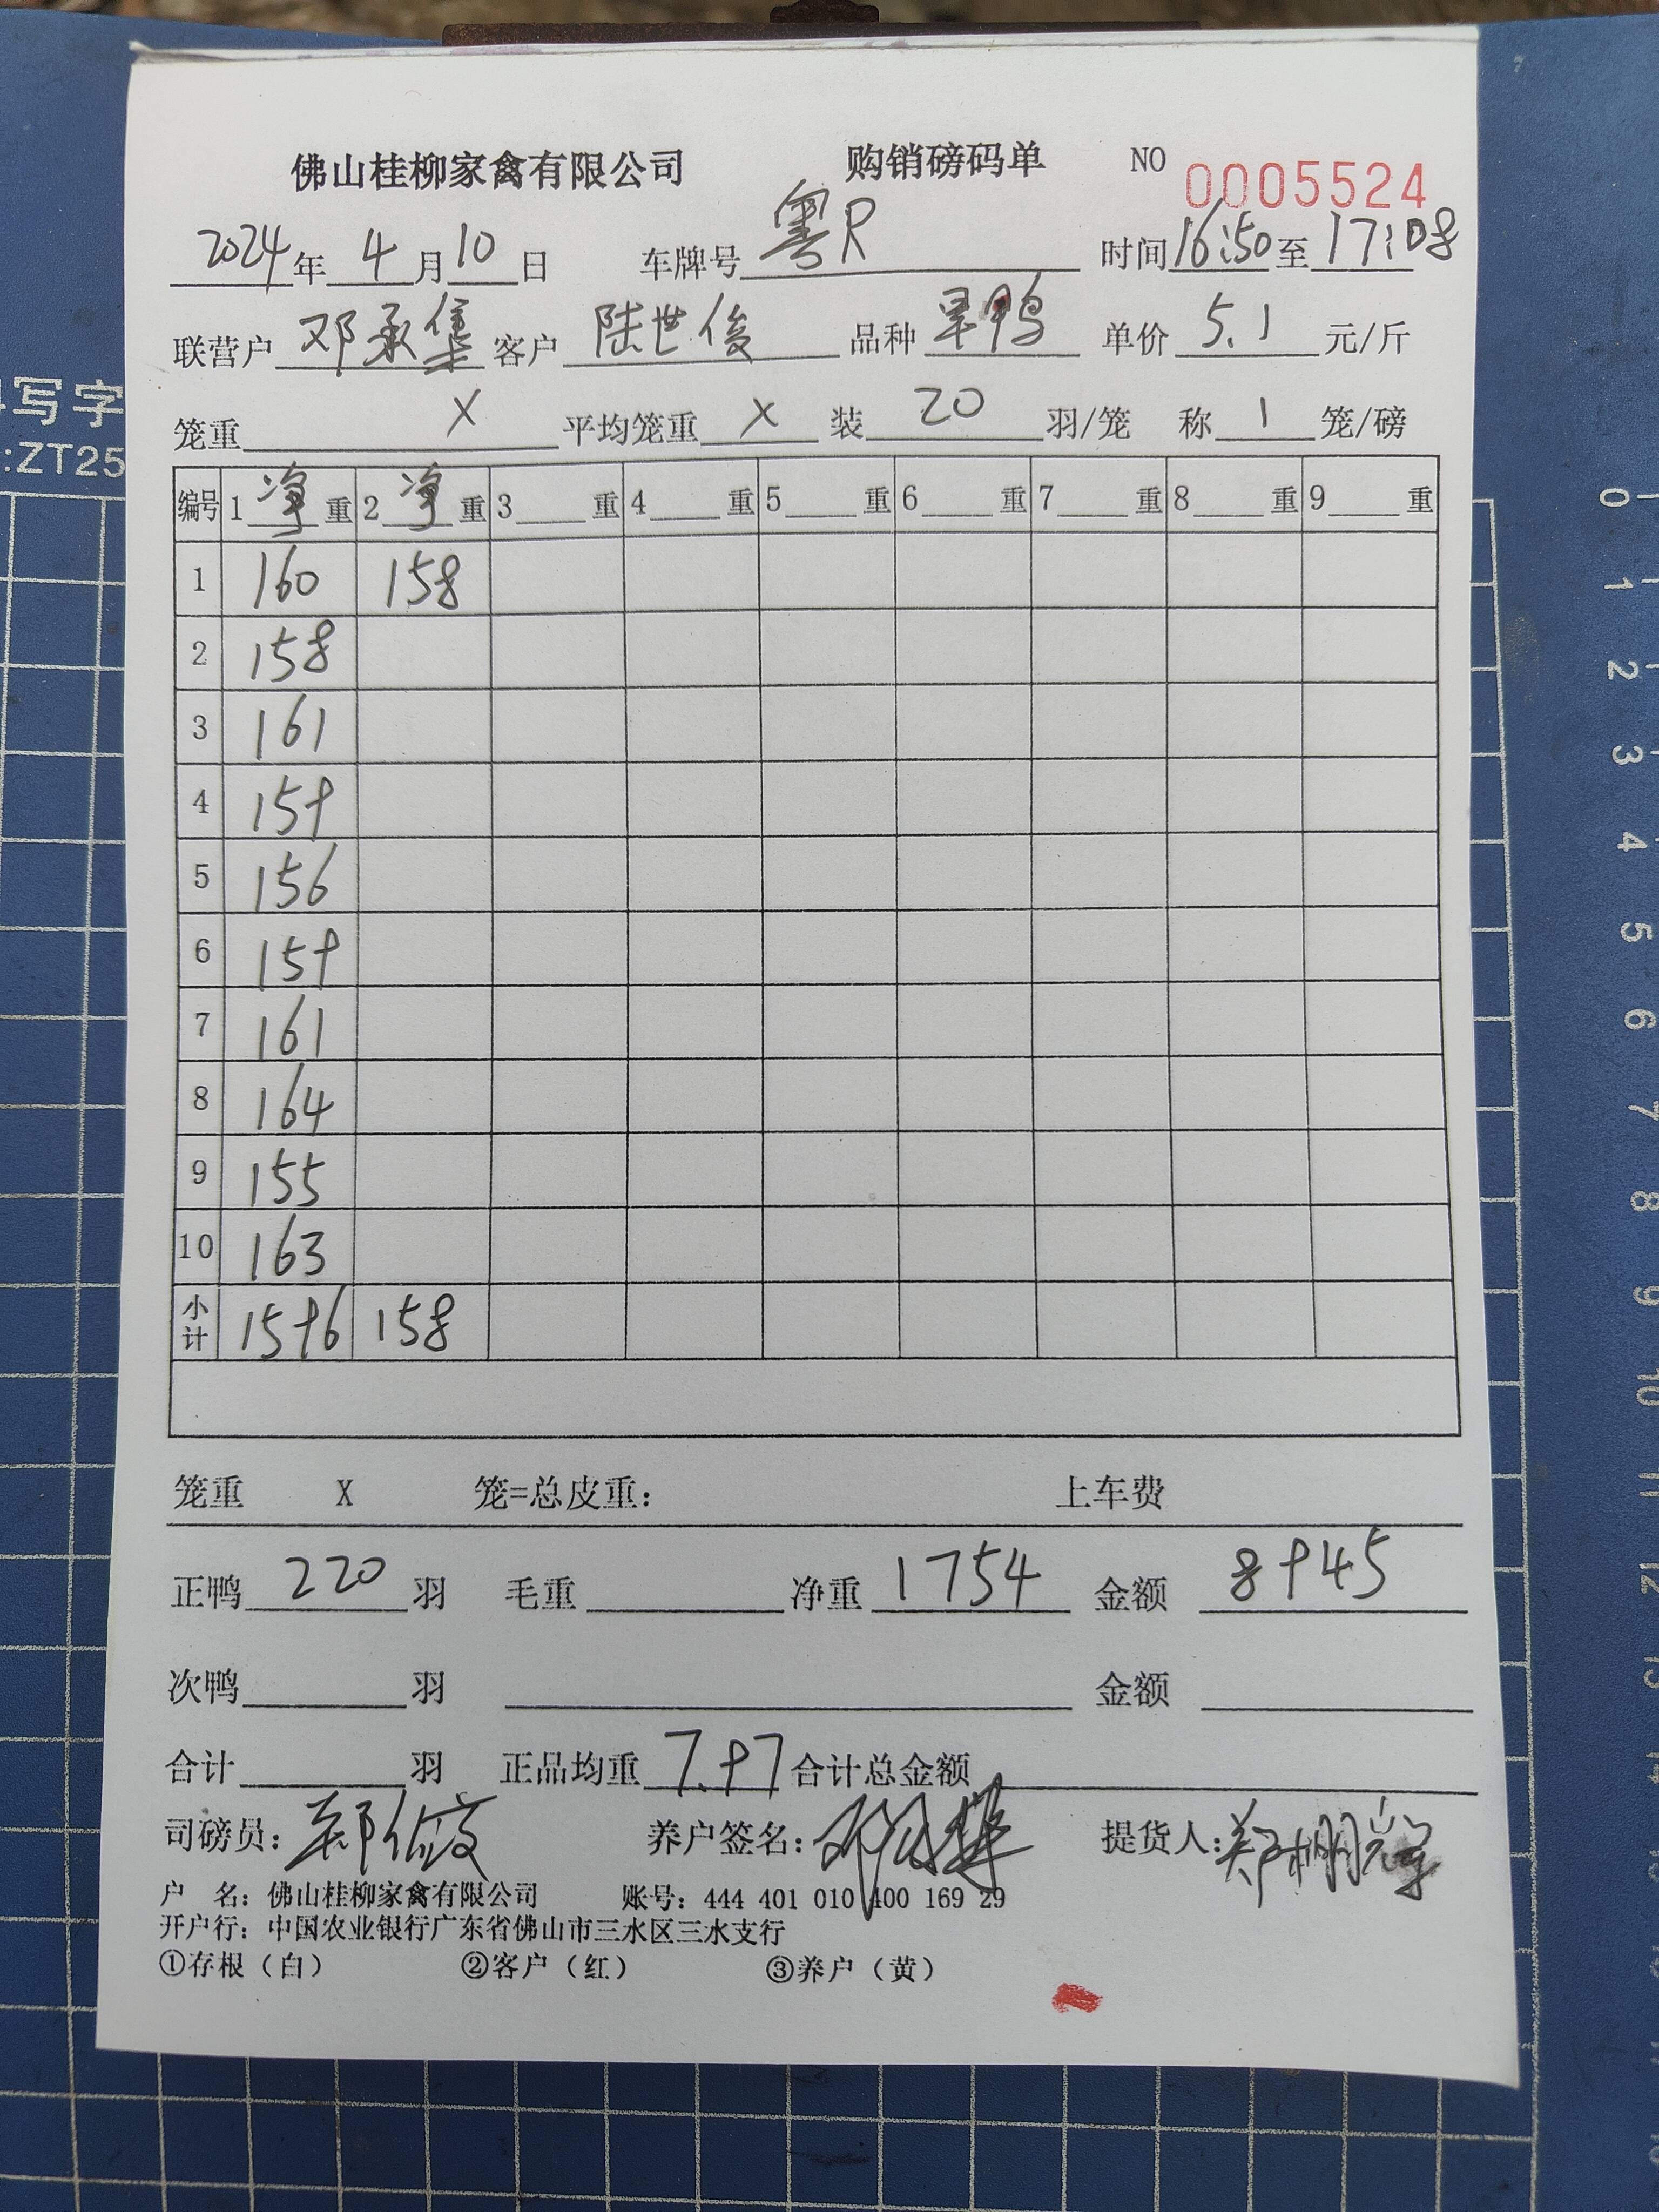 佛山桂柳家禽有限公司 购销磅码单 NO 0005524
2024年 4月10日 车牌号 粤R 时间16:50至17:08
联营户 邓承集 客户 陆世俊 品种 旱鸭 单价 5.1 元/斤
笼重 X 平均笼重 X 装 20 羽/笼 称 1 笼/磅
编号 1 净 重 2 净 重 3 重 4 重 5 重 6 重 7 重 8 重 9 重
1 160 158
2 158
3 161
4 159
5 156
6 159
7 161
8 164
9 155
10 163
小计 1596 158
笼重 X 笼=总皮重: 上车费
正鸭 220 羽 毛重 净重 1754 金额 8945
次鸭 羽 金额
合计 羽 正品均重 7.97 合计总金额
司磅员: 养户签名: 提货人:
户 名: 佛山桂柳家禽有限公司 账号: 444 401 010 400 169 29
开户行: 中国农业银行广东省佛山市三水区三水支行
①存根(白) ②客户(红) ③养户(黄)
写字
:ZT25
0
1
2
3
4
5
6
7
8
9
10
11
12
13
14